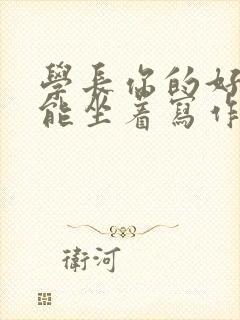 學長你的好
能坐着寫作
衛河